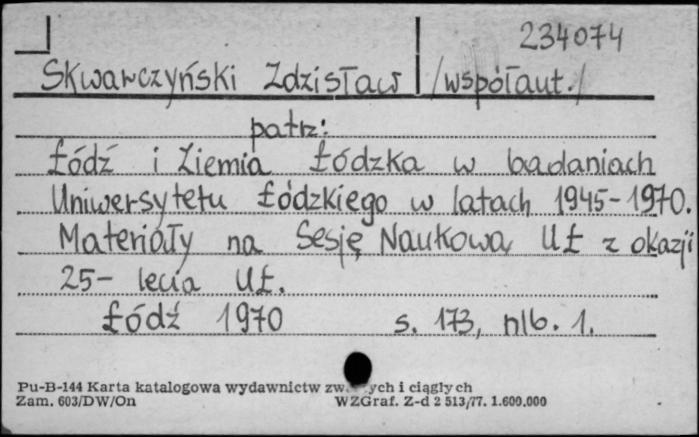 234074
Skwarczyński Zdzisław /współaut./
patrz:
Łódź i Ziemia Łódzka w badaniach
Uniwersytetu Łódzkiego w latach 1945-1970.
Materiały na Sesję Naukową UŁ z okazji
25-lecia UŁ.
Łódź 1970 s. 173, nlb. 1.
Pu-B-144 Karta katalogowa wydawnictw i ciągłych
Zam. 603/DW/On WZGraf. Z-d 2 513/77. 1.600.000